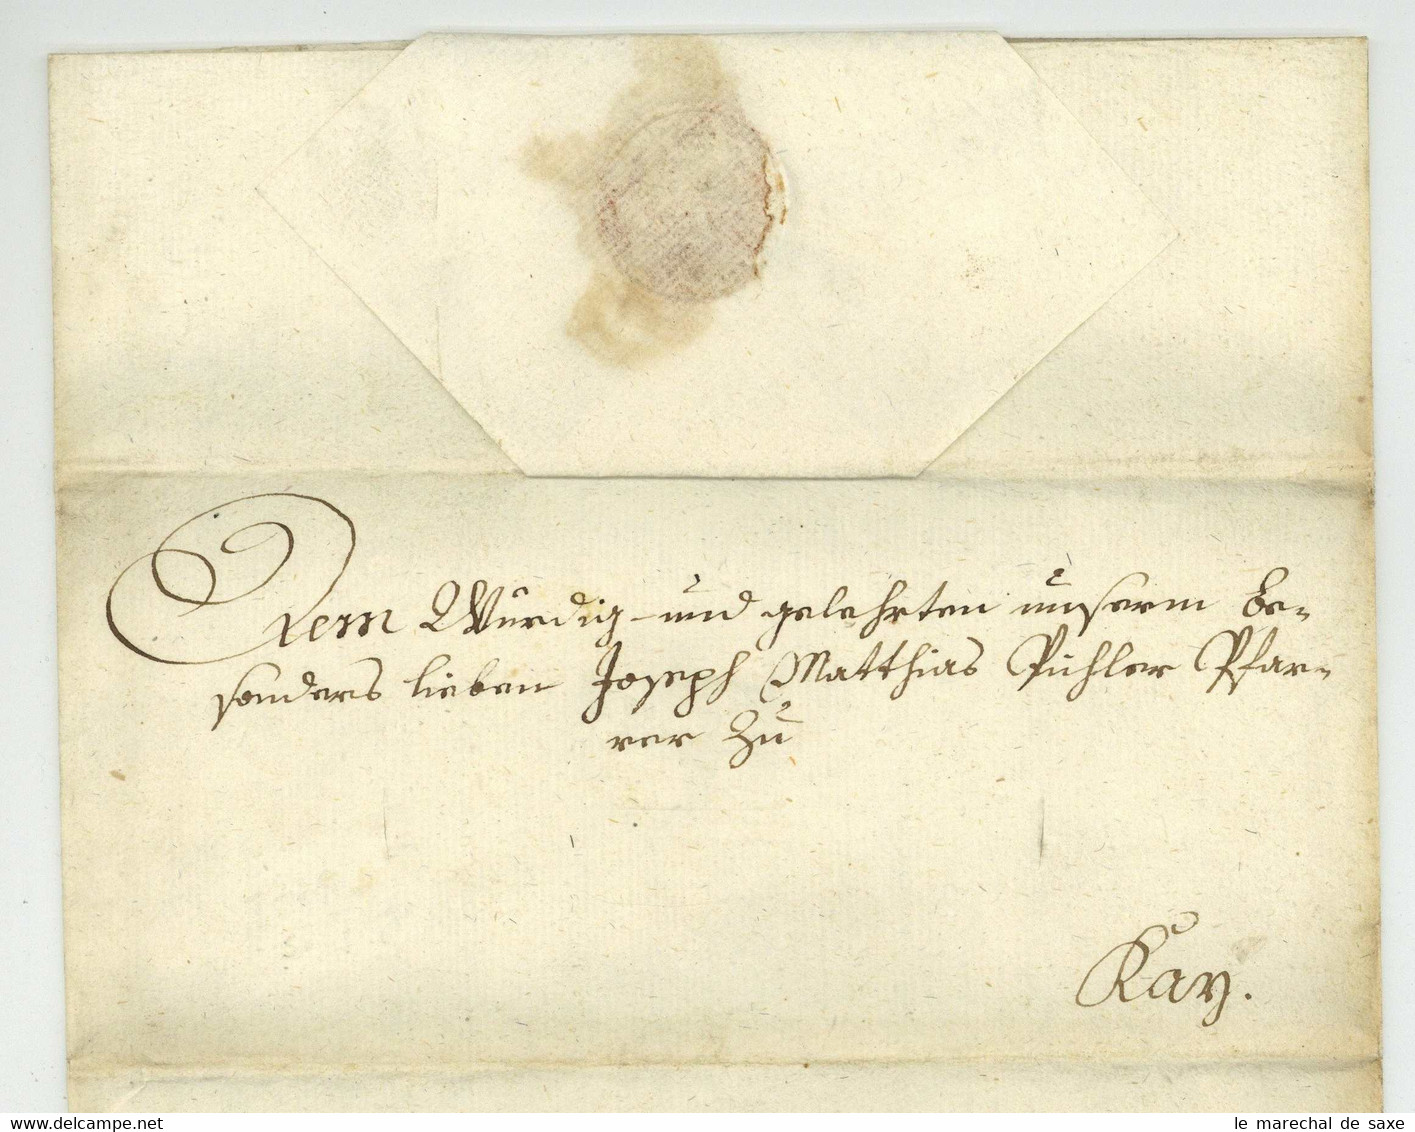 Dem Würdig- und gelehrten unserm be-
sonders lieben Joseph Matthias Pichler Pfar-
rer Zu
Kay.
delcampe.net
le marechal de saxe